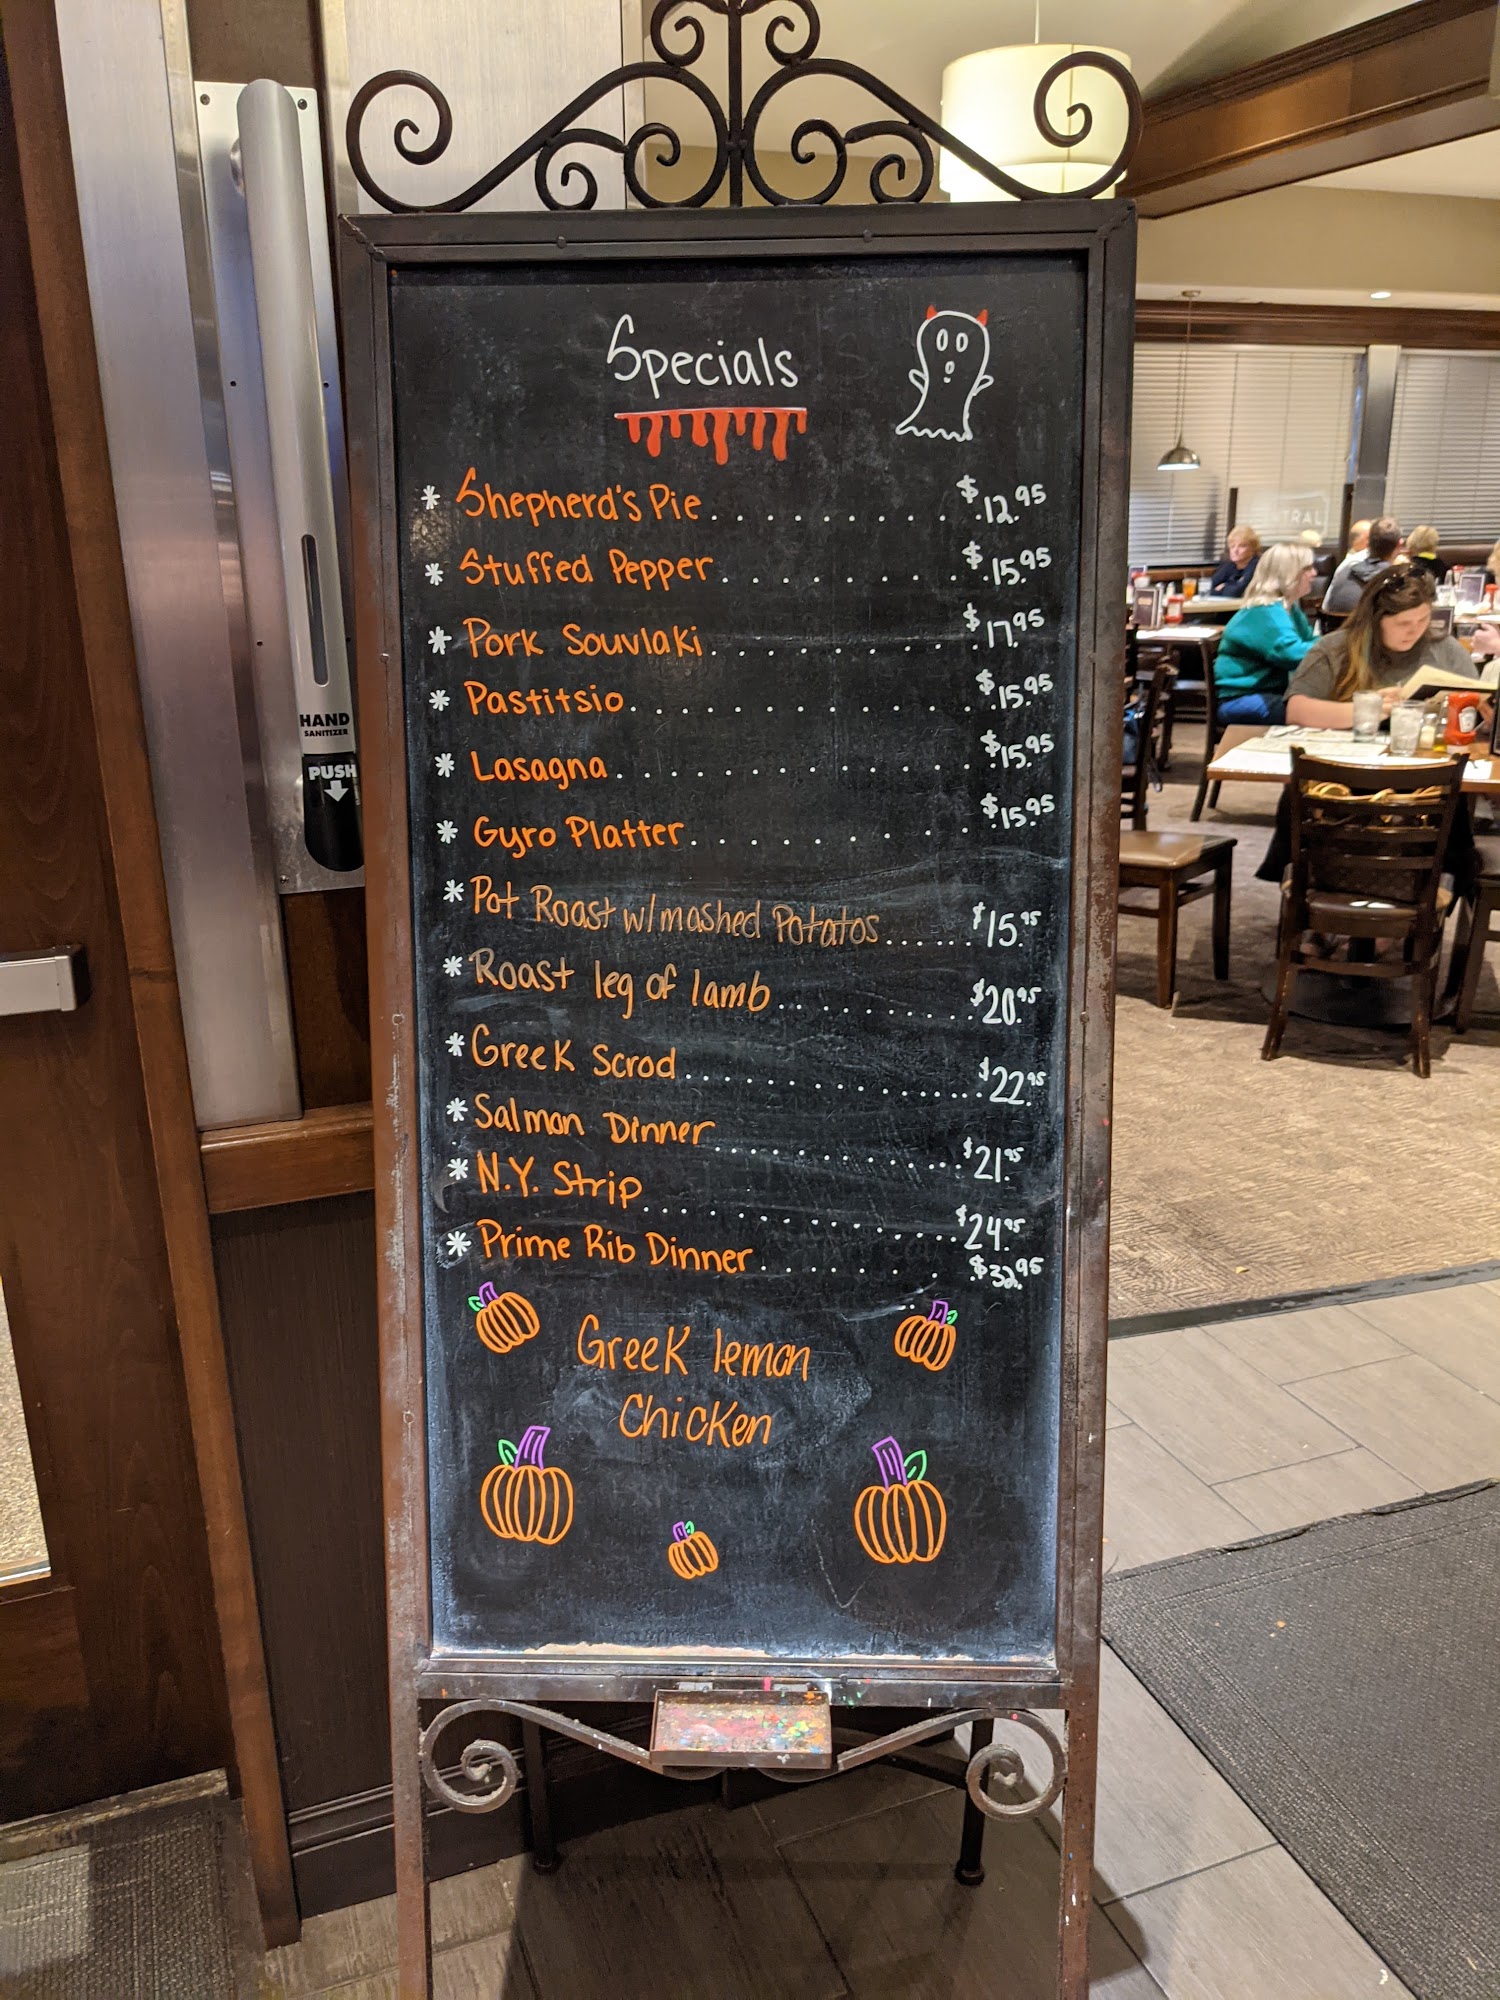 Specials
* Shepherd's Pie.......... $12.95
* Stuffed Pepper.......... $15.95
* Pork Souvlaki.......... $17.95
* Pastitsio.............. $15.95
* Lasagna.............. $15.95
* Gyro Platter.......... $15.95
* Pot Roast w/mashed Potatos...... $15.95
* Roast leg of lamb............ $20.95
* Greek Scrod.................. $22.95
* Salmon Dinner............... $21.95
* N.Y. Strip.................. $24.95
* Prime Rib Dinner........ $32.95
Greek lemon
Chicken
HAND
SANITIZER
PUSH